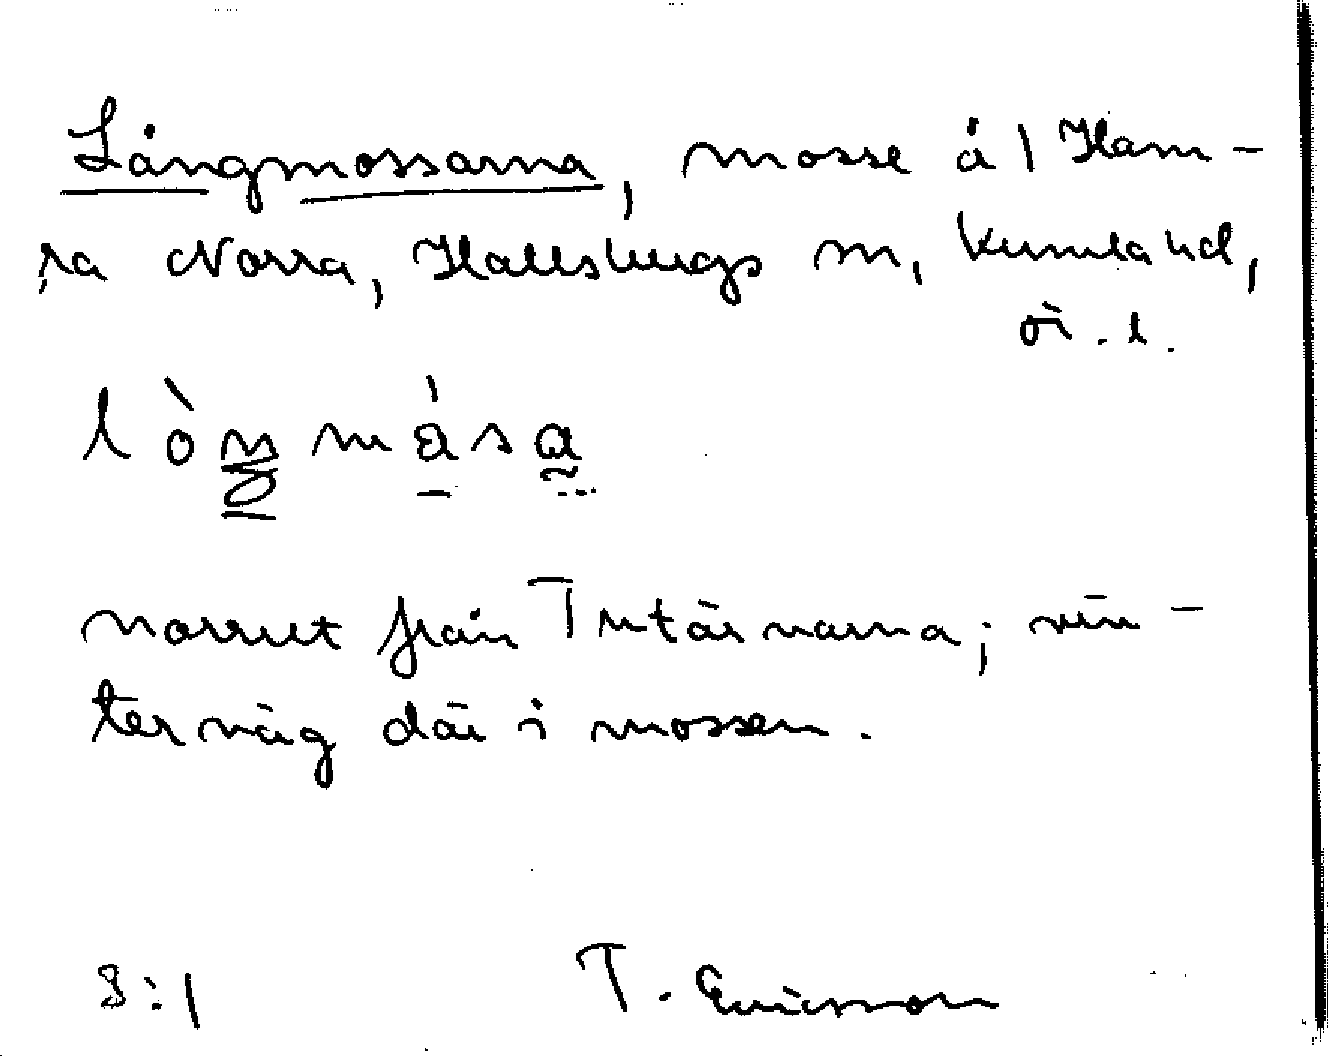 Långmossarna, mosse å 1 Ham-
ra Norra, Hallsbergs sn, Kumla hd,
ör. l.
lòŋmása
norrut från Trutärnarna; vin-
terväg där i mossen.
8:1 T. Ericsson